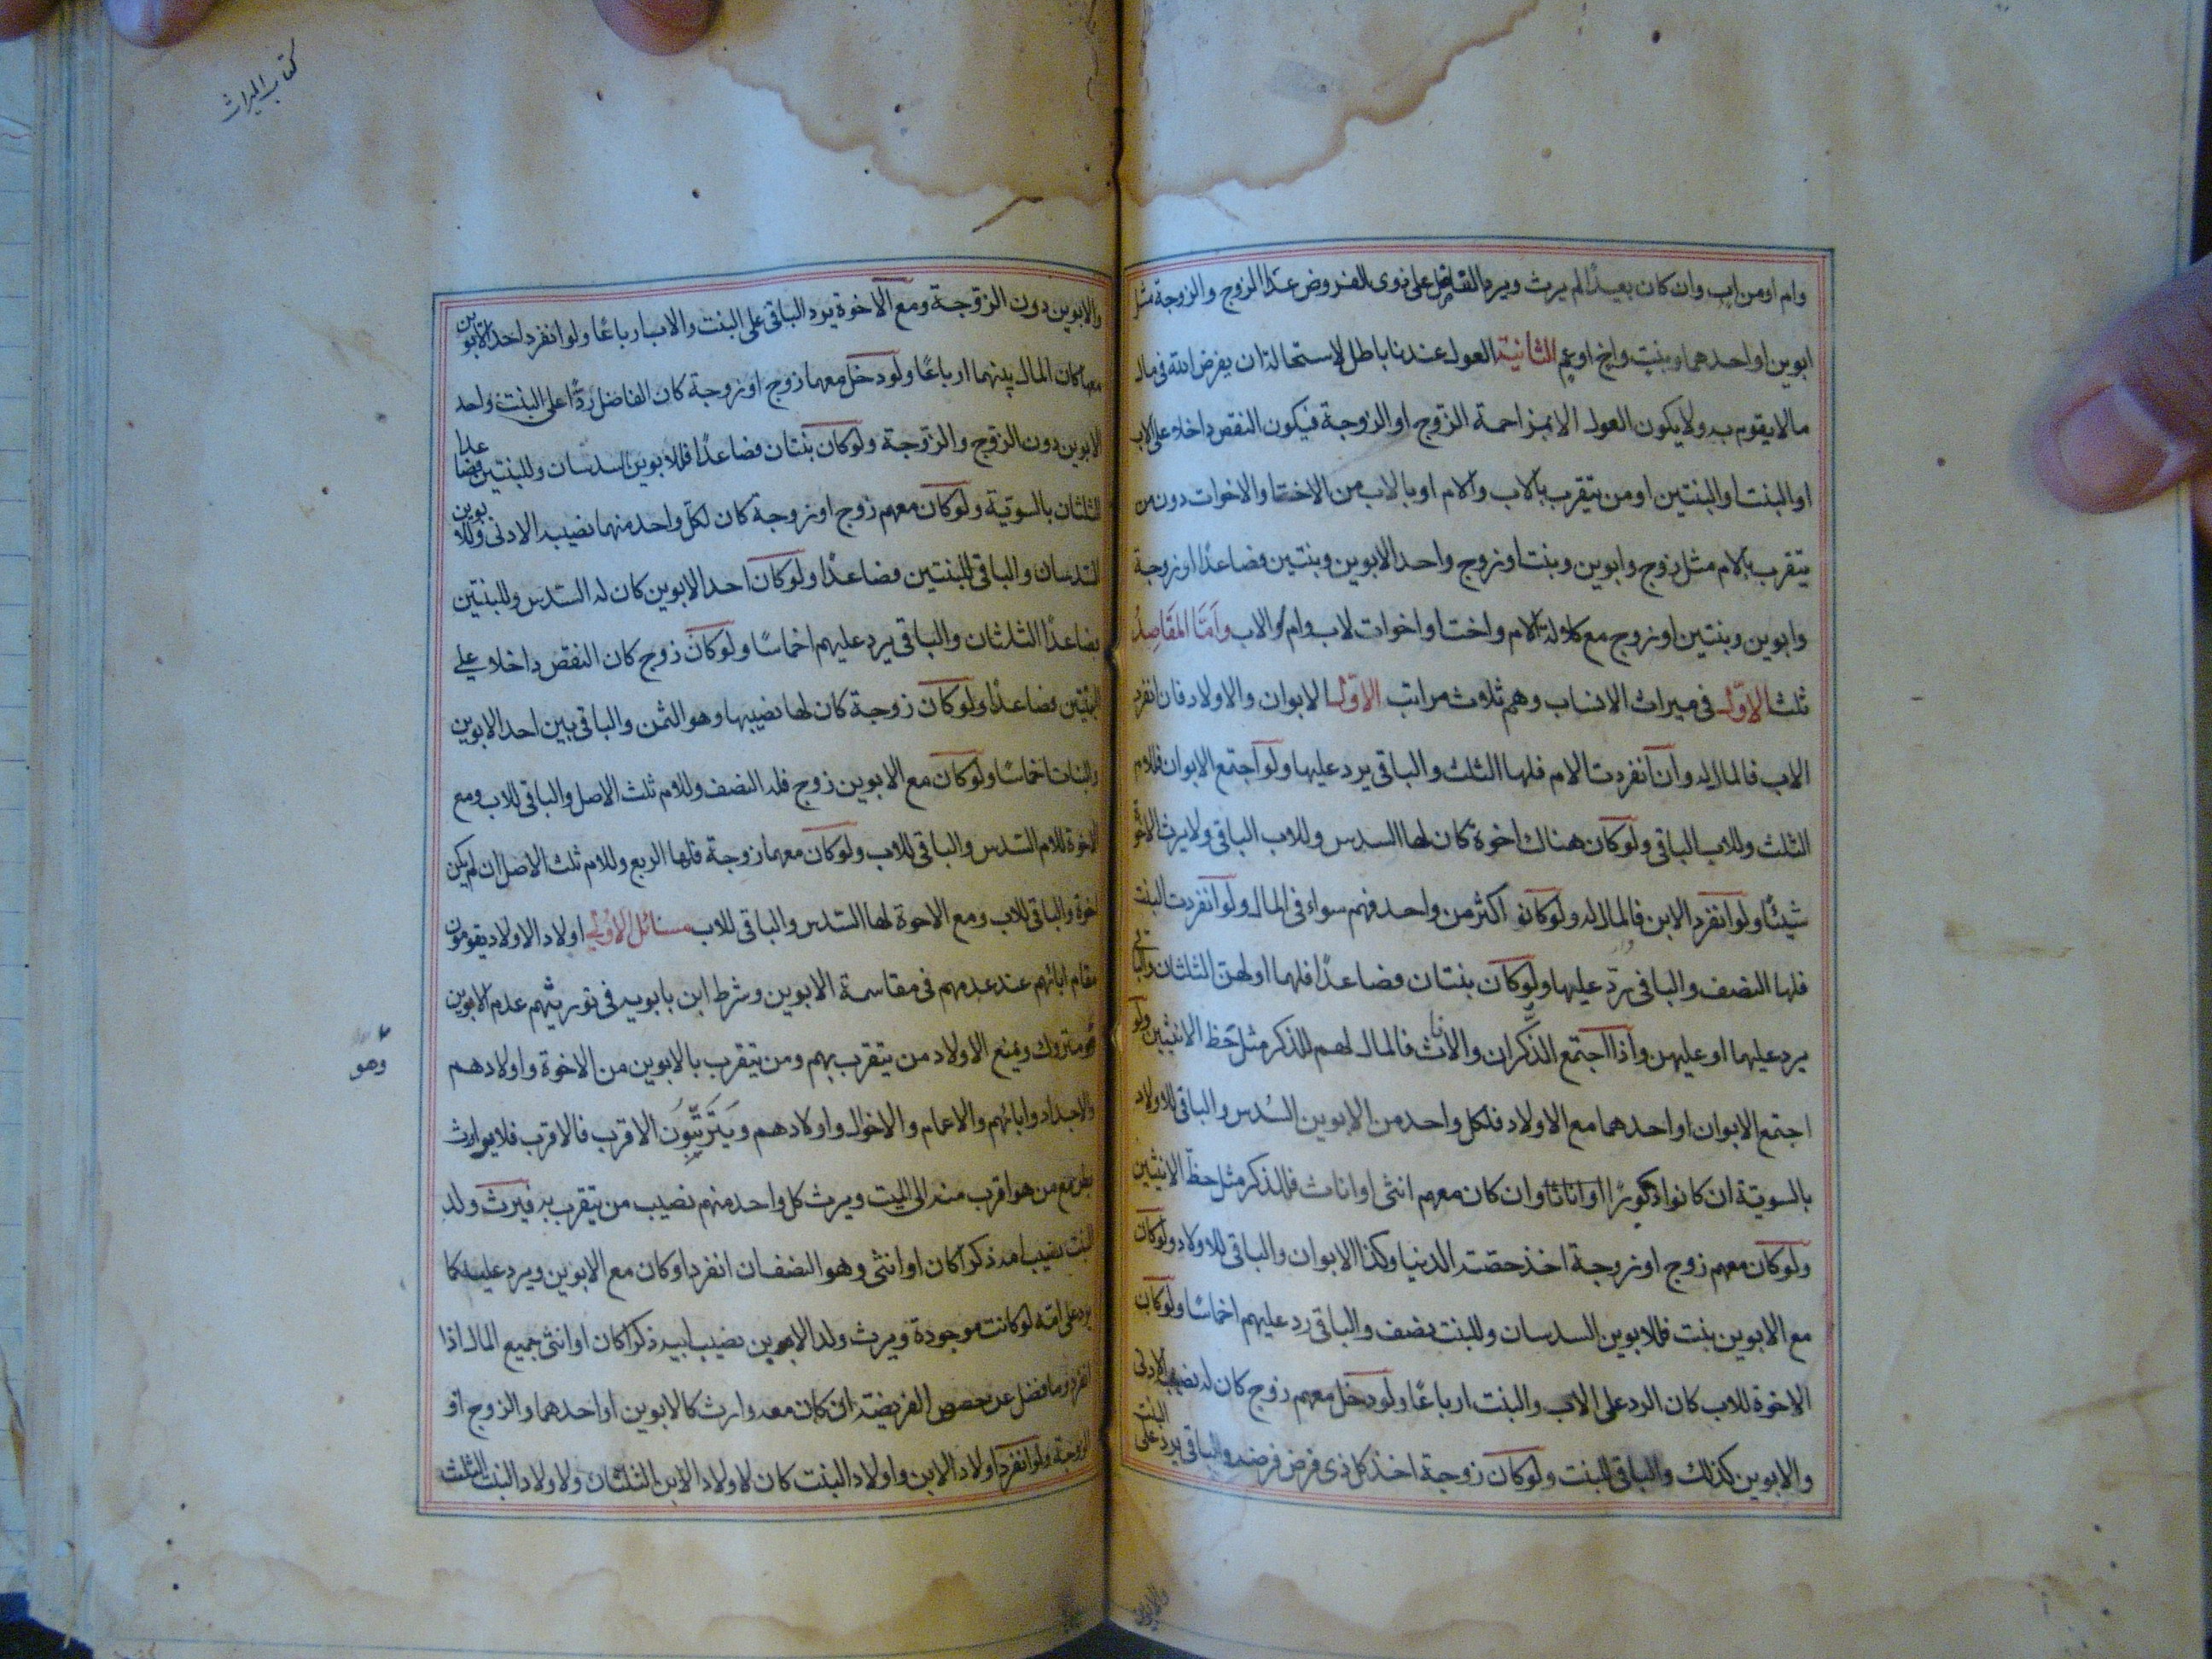 وام او من اب وان كان بعيدًا لم يرث ويرد الفاضل على ذوى الفروض عدا الزوج والزوجة مثل
ابوين او احدهما وبنت واخ او عم الثانية العول عندنا باطل لاستحالة ان يفرض الله فى مال
مالا يقوم به ولا يكون العول الا بمزاحمة الزوج او الزوجة فيكون النقص داخلا على الاب
او البنت او البنتين او من يتقرب بالاب والام او بالاب من الاخت او الاخوات دون من
يتقرب بالام مثل زوج وابوين وبنت او زوج واحد الابوين وبنتين فصاعدًا او زوجة
وابوين وبنتين او زوج مع كلالة الام واخت او اخوات لاب وام او لاب واما المقاصد
ثلثة الاول فى ميراث الانساب وهم ثلاث مراتب الاولى الابوان والاولاد فان انفرد
الاب فالمال له وان انفردت الام فلها الثلث والباقى يرد عليها ولو اجتمع الابوان فللام
الثلث وللاب الباقى ولو كان هناك اخوة كان لها السدس وللاب الباقى ولا يرث الاخوة
شيئًا ولو انفرد الابن فالمال له ولو كانو اكثر من واحد فهم سواء فى المال ولو انفردت البنت
فلها النصف والباقى يرد عليها ولو كان بنتان فصاعدًا فلهما او لهن الثلثان والباقى
يرد عليهما او عليهن واذا اجتمع الذكران والاناث فالمال لهم للذكر مثل حظ الانثيين ولو
اجتمع الابوان او احدهما مع الاولاد فلكل واحد من الابوين السدس والباقى للاولاد
بالسوية ان كانوا ذكورًا او اناثا وان كان معهم انثى او اناث فللذكر مثل حظ الانثيين
ولو كان معهم زوج او زوجة اخذ حصته الدنيا وكذا الابوان والباقى للاولاد ولو كان
مع الابوين بنت فللابوين السدسان وللبنت نصف والباقى رد عليهم اخماسًا ولو كان
الاخوة للاب كان الرد على الاب والبنت ارباعًا ولو دخل معهم زوج كان له نصيبه الادنى
والابوين كذلك والباقى للبنت ولو كان زوجة اخذ كل ذى فرض فرضه والباقى يرد على البنت
والابوين
كتاب الميراث
والابوين دون الزوجة ومع الاخوة يرد الباقى على البنت والاب ارباعًا ولو انفرد احد الابوين
معها كان المال بينهما ارباعًا ولو دخل معهما زوج او زوجة كان الفاضل ردًا على البنت واحد
الابوين دون الزوج والزوجة ولو كان بنتان فصاعدًا فللابوين السدسان وللبنتين فصاعدا
الثلثان بالسوية ولو كان معهم زوج او زوجة كان لكل واحد منهما نصيبه الادنى وللابوين
السدسان والباقى للبنتين فصاعدًا ولو كان احد الابوين كان له السدس وللبنتين
فصاعدًا الثلثان والباقى يرد عليهم اخماسًا ولو كان زوج كان النقص داخلا على
البنتين فصاعدًا ولو كان زوجة كان لها نصيبها وهو الثمن والباقى بين احد الابوين
والبنات اخماسًا ولو كان مع الابوين زوج فله النصف وللام ثلث الاصل والباقى للاب ومع
الاخوة للام السدس والباقى للاب ولو كان معهما زوجة فلها الربع وللام ثلث الاصل ان لم يكن
اخوة والباقى للاب ومع الاخوة لها السدس والباقى للاب مسائل الاولى اولاد الاولاد يقومون
مقام ابائهم عند عدمهم فى مقاسمة الابوين وشرط ابن بابويه فى توريثهم عدم الابوين
وهو متروك ويمنع الاولاد من يتقرب بهم ومن يتقرب بالابوين من الاخوة واولادهم
وهو
والاجداد وابائهم والاعمام والاخوال واولادهم ويترتبون الاقرب فالاقرب فلا يرث
بطن مع من هو اقرب منه الى الميت ويرث كل واحد منهم نصيب من يتقرب به فيرث ولد
البنت نصيب امه ذكرا كان او انثى وهو النصف ان انفرد او كان مع الابوين ويرد عليه كما
يرد على امه لو كانت موجودة ويرث ولد الابن نصيب ابيه ذكرا كان او انثى جميع المال اذا
انفرد وما فضل عن حصص الفريضة ان كان معه وارث كالابوين او احدهما والزوج او
الزوجة ولو انفرد اولاد الابن واولاد البنت كان لاولاد الابن الثلثان ولاولاد البنت الثلث